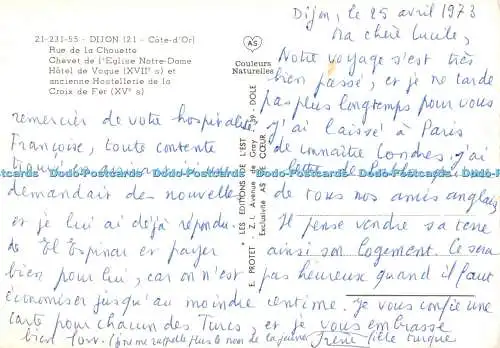 21-231-55 - DIJON (21 - Côte-d'Or)
Rue de la Chouette
Chevet de l'Eglise Notre-Dame
Hôtel de Vogue (XVIIe s) et
ancienne Hostellerie de la
Croix de Fer (XVe s)
AS
Couleurs
Naturelles
★ LES EDITIONS DE L'EST
E. PROTET - Z.I. Avenue de Gray - 39 - DOLE
Exclusivité AS DE CŒUR
Dijon, le 25 avril 1973
Ma chère Lucile,
Notre voyage s'est très
bien passé, et je ne tarde
pas plus longtemps pour vous
remercier de votre hospitalité.
J'ai laissé à Paris
Françoise, toute contente
de connaître Londres. J'ai
trouvé en
demandait des nouvelles
de tous nos amis anglais
et je lui ai déjà répondu.
Il pense vendre sa terre
de et payer
ainsi son logement. Ce sera
bien pour lui, car on n'est
pas heureux quand il faut
économiser jusqu'au moindre
centime. Je vous confie une
carte pour chacun des Turcs,
et je vous embrasse
bien fort. Irène
(Je ne me rappelle plus le nom de la jeune fille turque